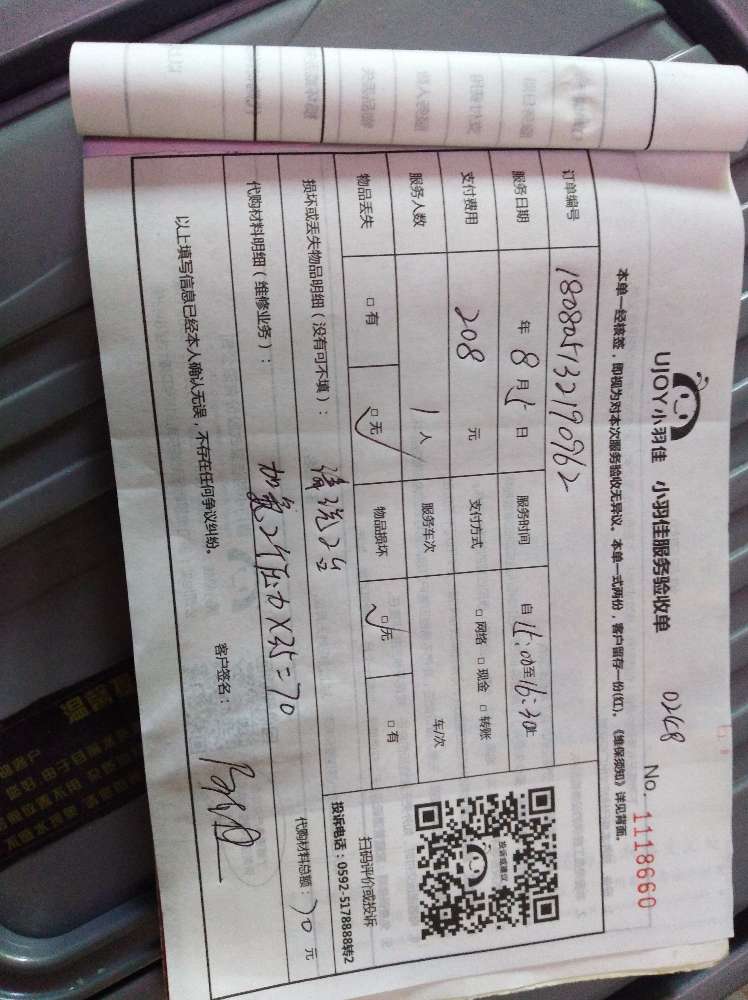 UJOY小羽佳 小羽佳服务验收单 0248 No. 1118660
本单一经核签，即视为对本次服务验收无异议。本单一式两份，客户留存一份(红)，《维保须知》详见背面。
订单编号 180805132190962
服务日期 年 8 月 5 日 服务时间 自 15:00 至 16:30 止
支付费用 208 元 支付方式 □ 网络 □ 现金 □ 转账
服务人数 1 人 服务车次 车/次
物品丢失 □ 有 □ 无 ✓ 物品损坏 □ 无 ✓ □ 有
投诉或建议
扫码评价或投诉
投诉电话：0592-5178888转2
损坏或丢失物品明细（没有可不填）： 清洗2台
代购材料明细（维修业务）： 加氟2个压力X35=70 代购材料总额： 70 元
以上填写信息已经本人确认无误，不存在任何争议纠纷。 客户签名：